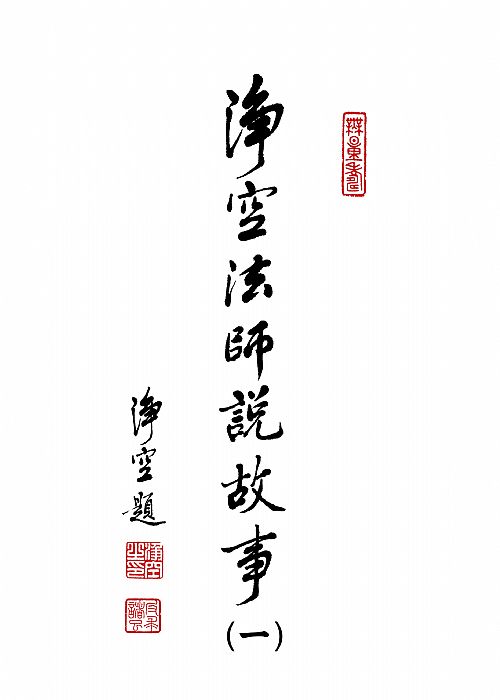 淨空法師說故事
(一)
淨空題